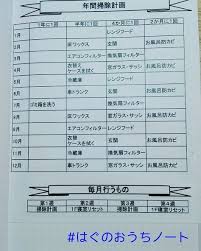 年間掃除計画
1年に1回 半年に1回 4か月に1回 2か月に1回
1月 レンジフード
2月 床ワックス 玄関 お風呂防カビ
3月 エアコンフィルター 換気扇フィルター
4月 衣替え ケースを拭く 窓ガラス・サッシ お風呂防カビ
5月 冷蔵庫 レンジフード
6月 車トランク 玄関 お風呂防カビ
7月 ゴミ箱を洗う 換気扇フィルター
8月 床ワックス 窓ガラス・サッシ お風呂防カビ
9月 エアコンフィルター レンジフード
10月 衣替え ケースを拭く 玄関 お風呂防カビ
11月 冷蔵庫 換気扇フィルター
12月 車トランク 窓ガラス・サッシ お風呂防カビ
毎月行うもの
第1週 第2週 第3週 第4週
掃除計画 1F寝室リセット 掃除計画 1F寝室リセット
#はぐのおうちノート